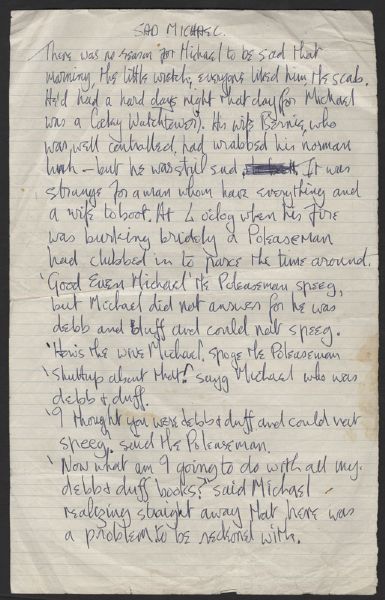 SAD MICHAEL.
There was no reason for Michael to be sad that
morning, (the little wretch), everyone liked him, the scab.
He'd had a hard days night that day, for Michael
was a Cocky Watchtower). His wife Bernie, who
was well controlled, had wrabbed his norman
lunch - but he was still sad. It was
strange for a man whom have everything and
a wife to boot. At 4 o'clog when his fire
was burking bridely a Poleaseman
had clubbed in to parse the time around.
'Good Even Michael' the Poleaseman speeg,
but Michael did not answer for he was
debb and duff and could not speeg.
'How's the wive Michael, spoge the Poleaseman
'Shuttup about that!' sayg Michael who was
debb & duff.
'I thought you were debb & duff and could not
speeg. said the Poleaseman.
'Now what am I going to do with all my
debb & duff books?' said Michael
realizing straight away that here was
a problem to be reckoned with.